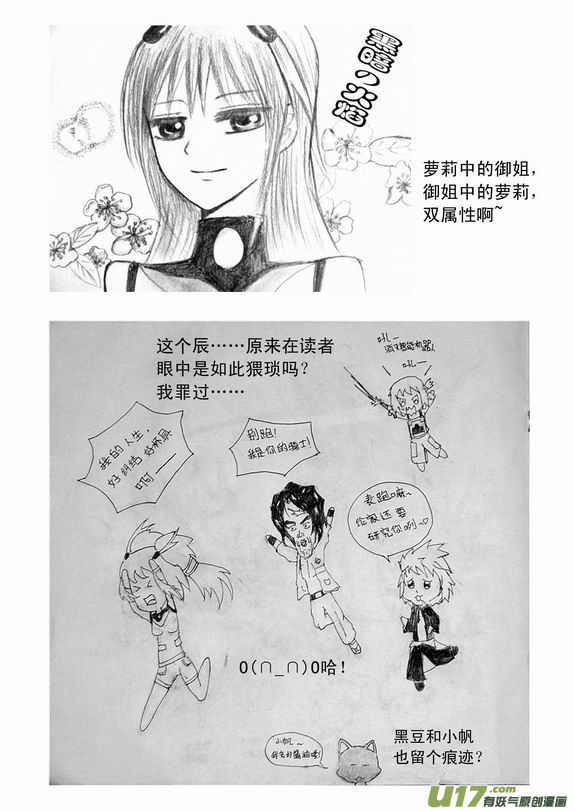 黑暗的火焰
萝莉中的御姐,
御姐中的萝莉,
双属性啊~
这个辰……原来在读者
眼中是如此猥琐吗?
我罪过……
吼—
吼—
我的人生,
好纠结 好杯具
啊——
别跑!
我是你的骑士!
表跑嘛~
伦家还要
研究你咧~♡
O(∩_∩)O哈!
小帆~
黑豆和小帆
也留个痕迹?
U17.com
有妖气原创漫画